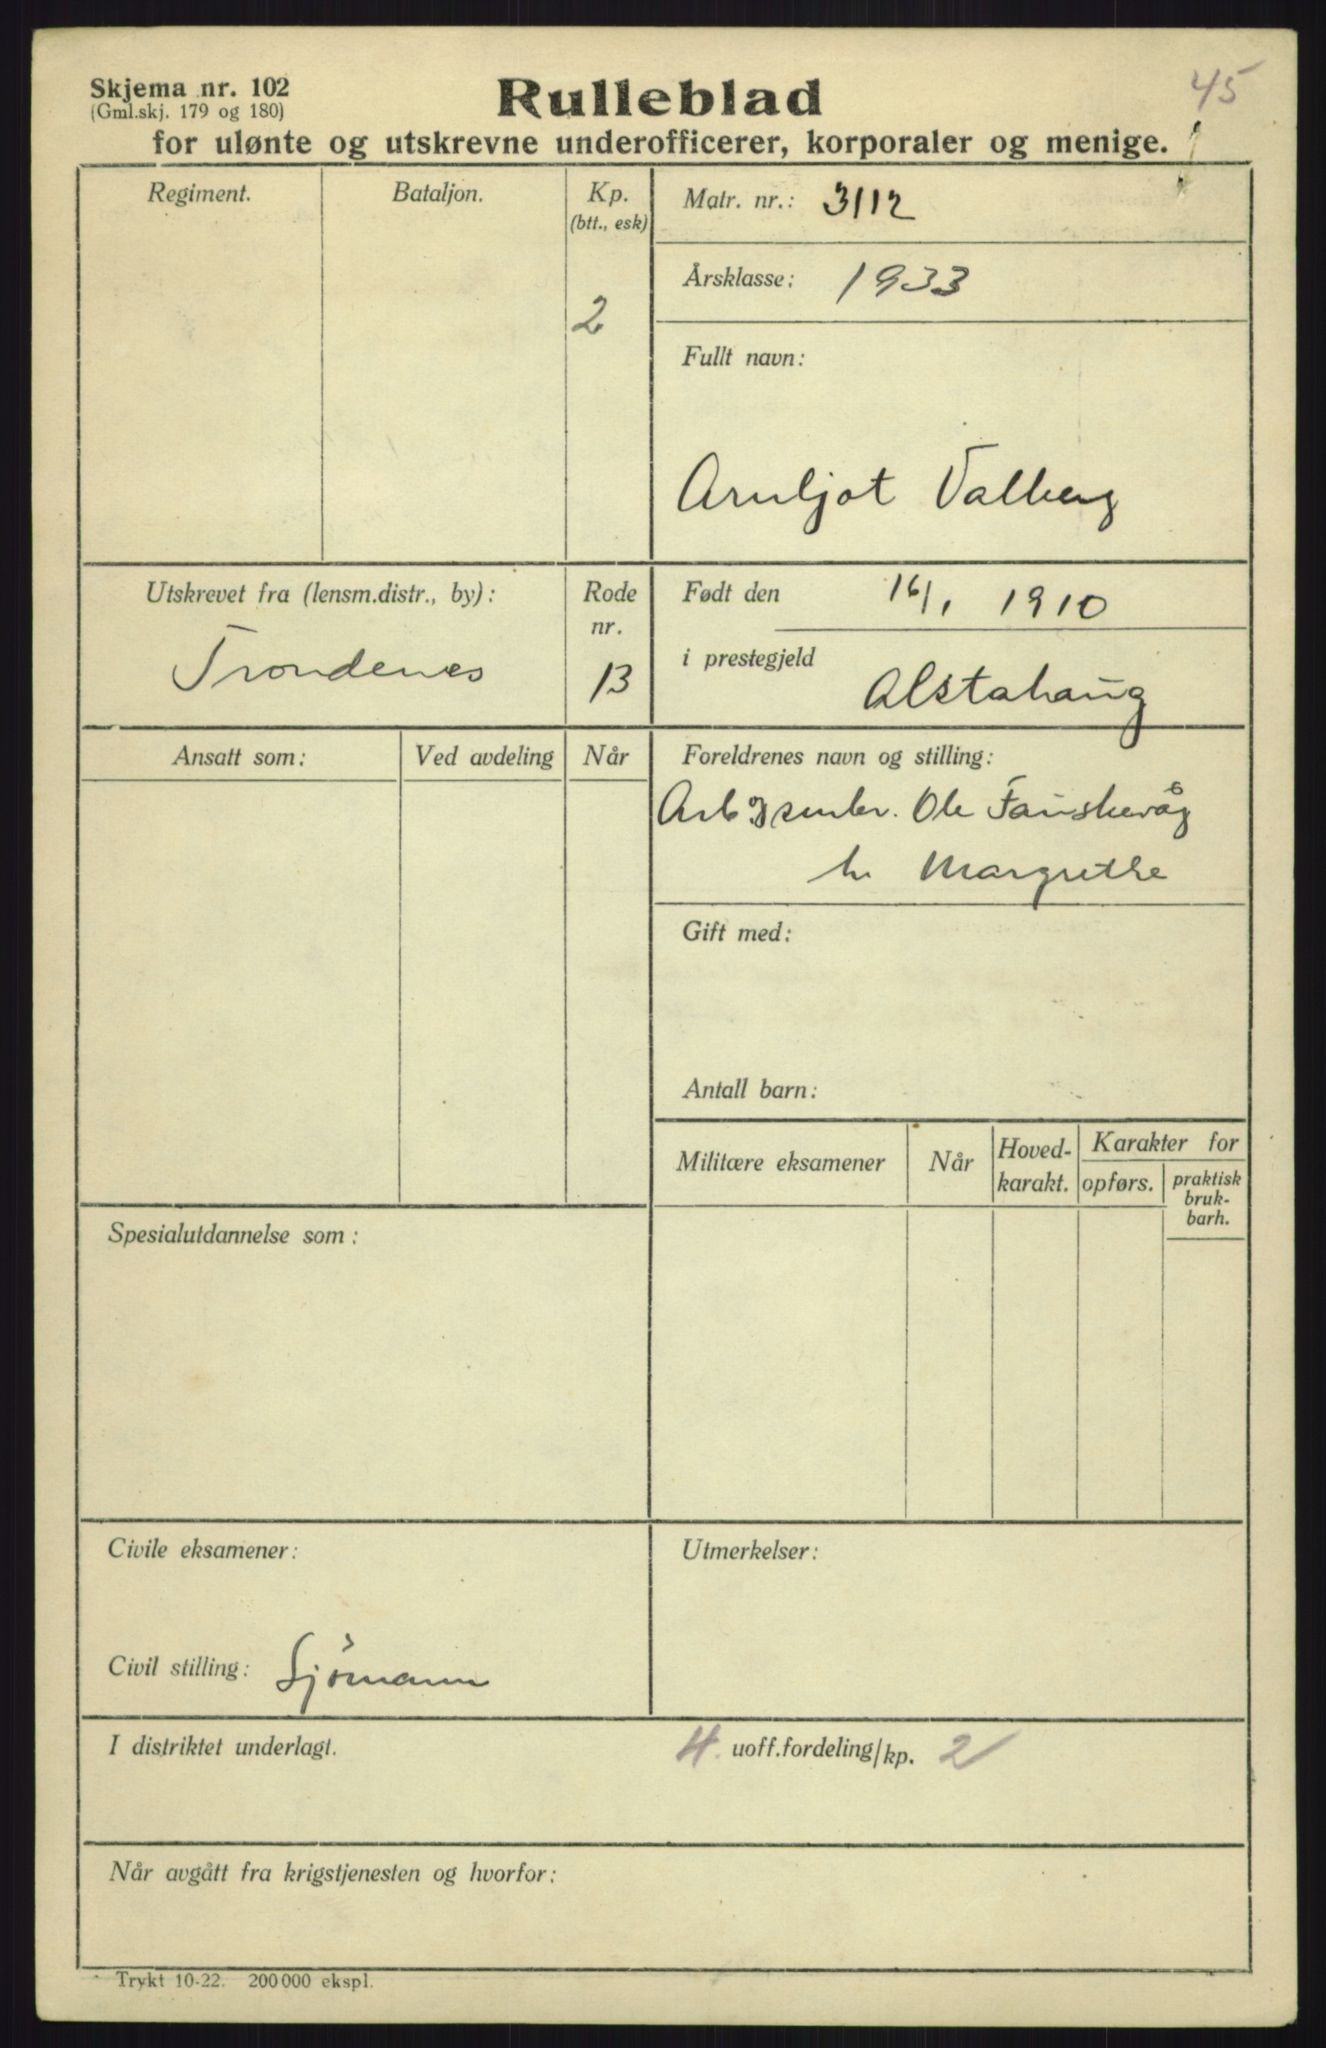 Skjema nr. 102
(Gml.skj. 179 og 180)
Rulleblad
45
for ulønte og utskrevne underofficerer, korporaler og menige.
Regiment.
Bataljon.
Kp.
(btt., esk)
2
Matr. nr.: 3112
Årsklasse: 1933
Fullt navn:
Arnljot Valberg
Utskrevet fra (lensm.distr., by):
Trondenes
Rode
nr.
13
Født den 16/1 1910
i prestegjeld Alstahaug
Ansatt som:
Ved avdeling
Når
Foreldrenes navn og stilling:
Ole Fauskevåg
Margrethe
Gift med:
Antall barn:
Militære eksamener
Når
Hoved-
karakt.
Karakter for
opførs.
praktisk
bruk-
barh.
Spesialutdannelse som:
Civile eksamener:
Civil stilling: Sjømann
Utmerkelser:
I distriktet underlagt.
4. uoff.fordeling/kp. 2
Når avgått fra krigstjenesten og hvorfor:
Trykt 10-22. 200000 ekspl.